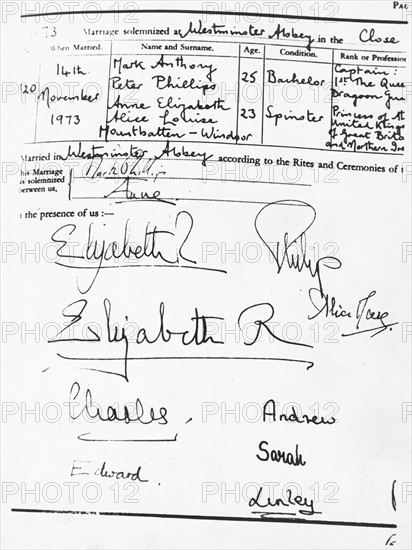 PAG
73 Marriage solemnized at Westminster Abbey in the Close
When Married. Name and Surname. Age. Condition. Rank or Profession
20 14th November 1973
Mark Anthony Peter Phillips 25 Bachelor Captain: 1st The Que Dragoon Gua
Anne Elizabeth Alice Louise Mountbatten-Windsor 23 Spinster Princess of th United King of Great Brita and Northern Ire
Married in Westminster Abbey according to the Rites and Ceremonies of t
his Marriage is solemnized between us,
Anne
n the presence of us:—
Elizabeth R Philip
Alice
Elizabeth R
Charles. Andrew
Sarah
Edward.
Linley
PHOTO12